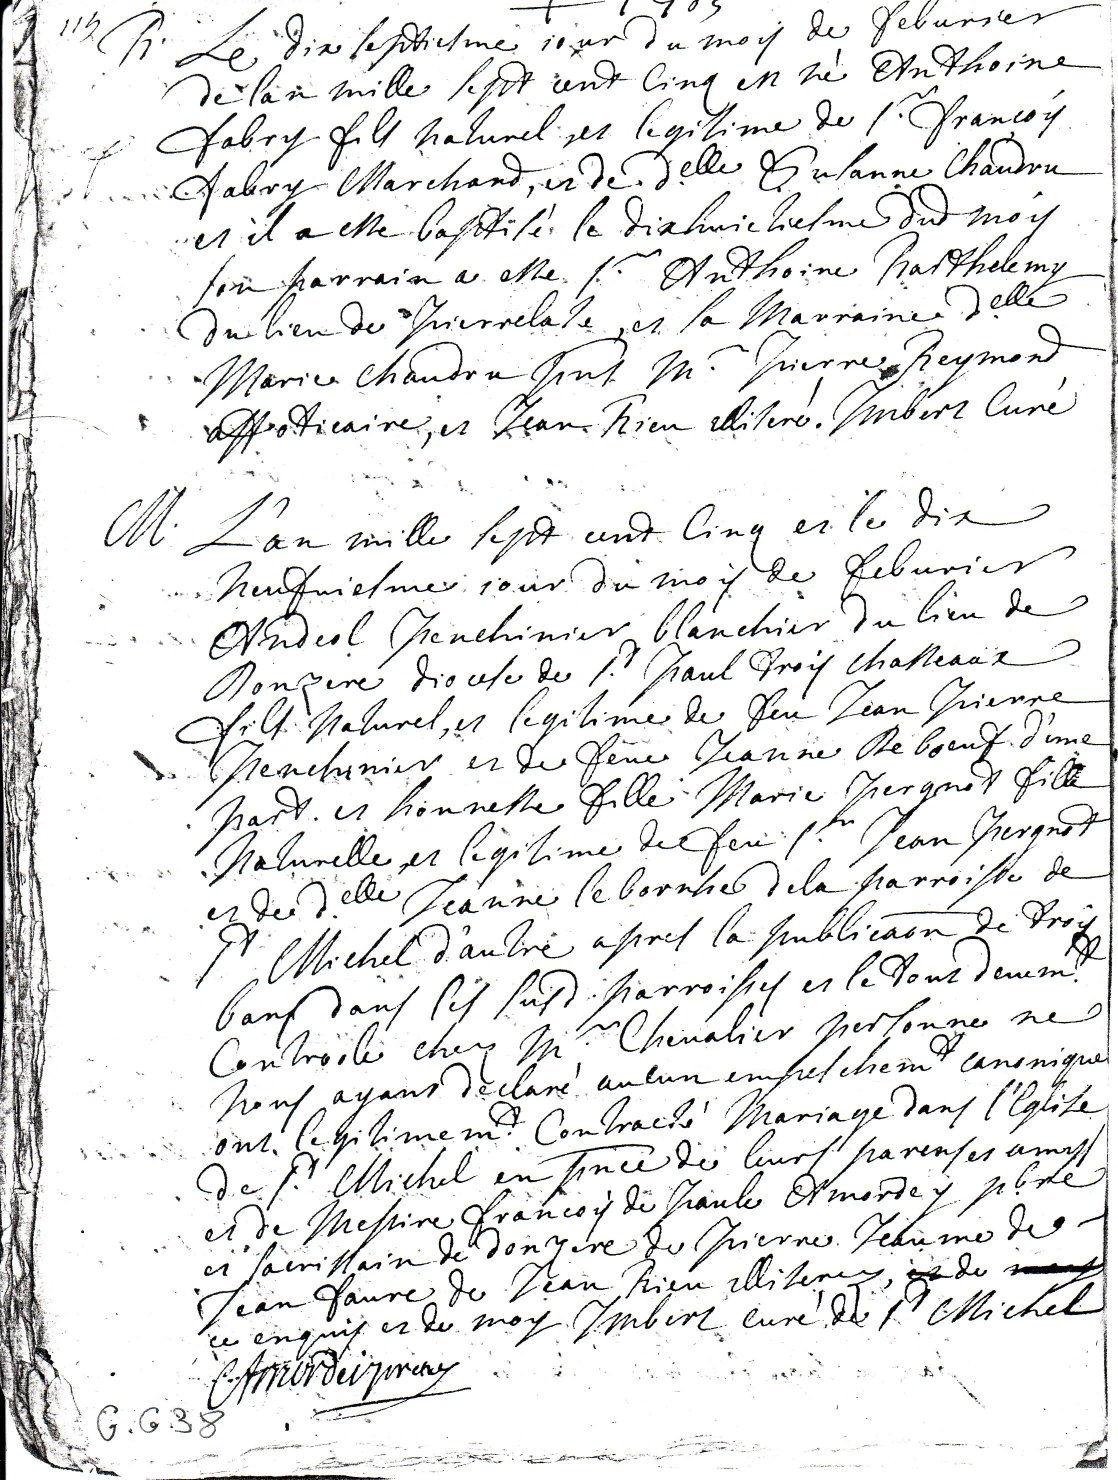 + 1705
115
B. Le dix septiesme jour du moy de feburier
de lan mille sept cent Cinq est né Anthoine
fabry fils naturel et legitime de Sr. françoy
fabry Marchand, et de delle Susanne Chaudru
et il a este baptisé le dixhuictiesme dud moy
son parrain a este Sr. Anthoine Barthelemy
du lieu de Pierrelate, et la Marraine delle
Marie Chaudru pnts Mr. Pierre Reymond
appoticaire, et Jean Rieu illiteré. Imbert Curé
M. L'an mille sept cent Cinq et le dix
neufuiesme jour du moy de feburier
Andeol Penchinier blanchier du lieu de
Donzere diocese de St. Paul troy chasteaux
fils Naturel, et legitime de feu Jean Pierre
Penchinier et de feue Jeanne Reboeuf d'une
part. et honneste fille Marie Pergnot fille
Naturelle, et legitime de feu Sr. Jean Pergnot
et de delle Jeanne le bornhe dela parroisse de
St Michel d'autre apres la publicaon de troy
bans dans les susd. parroisses et le tout deuemt.
Controolé chez Mr. Chevalier personne ne
nous ayant declaré aucun empeschemt canonique
ont legitimemt. Contracté Mariage dans l'Eglise
de St. Michel en pnce de leurs parens et amys
et de Messire françoy de Paule Amordey pbre
et sacristain de donzere de Pierre Jeaume de
Jean faure de Jean Rieu illiterez, et de
ce enquis et de moy Imbert curé de St Michel
G.G 38